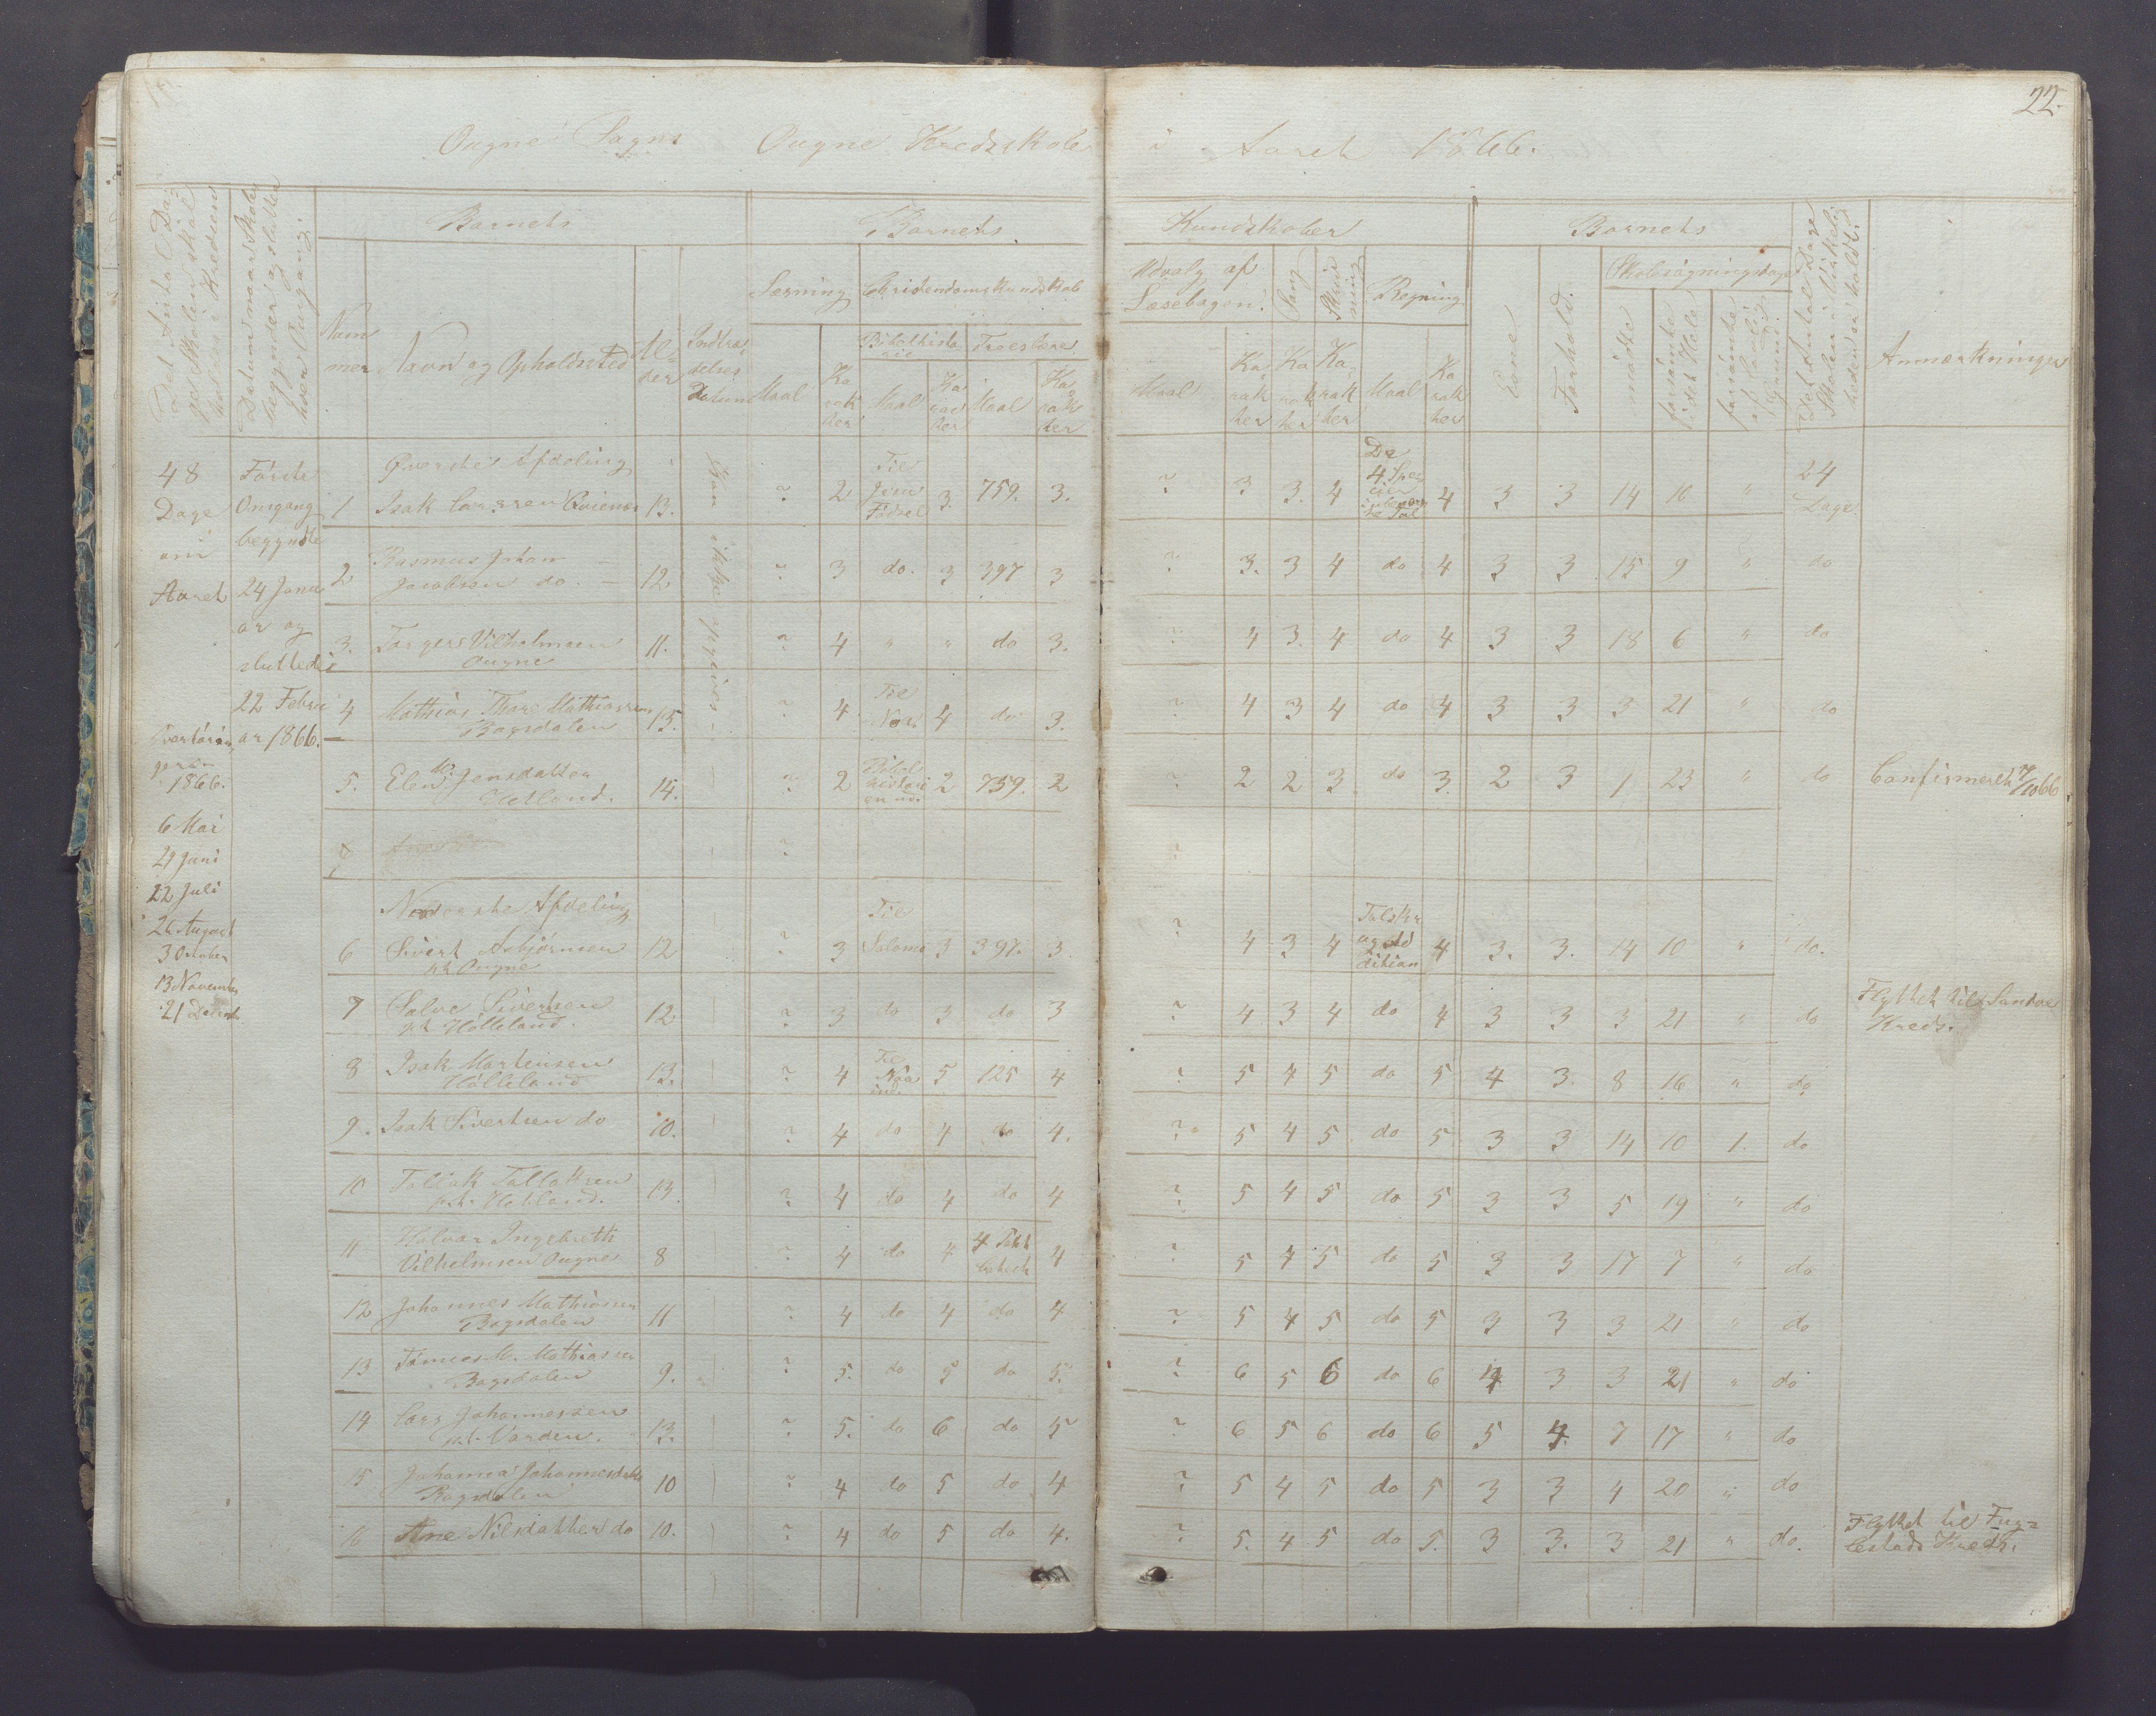 22.
Ougne Sogns Ougne Kredsskole i Aaret 1866.
Det Antal Dage Skolen skal holdes i Kredsen
Datum naar Skolen begynder og slutter hver Omgang.
Barnets
Barnets
Kundskaber
Barnets
Nummer
Navn og Opholdssted
Alder
Indtrædelses Datum
Læsning
Christendomskundskab
Bibelhistorie
Troeslære
Udvalg af Læsebogen.
Sang
Skrivning
Regning
Evne
Forhold.
Skolesøgningsdage
mødte
forsømte i det Hele
forsømte af lovlig Grund.
Det Antal Dage Skolen i Virkeligheden er holdt.
Anmærkninger
Maal Karakter Maal Karakter Maal Karakter
Maal Karakter Karakter Karakter Maal Karakter
48 Dage om Aaret
Første Omgang begyndte 24 Januar og sluttedes 22 Februar 1866.
1866.
6 Mai
29 Juni
22 Juli
26 August
3 October
13 November
21 Decemb
Kan ikke opgives
Øverste Afdeling
1 Isak Larssen Qvienes 13. ? 2 Til Jesu Fødsel 3. 759. 3. ? 3 3. 4 De 4 Species 4 3 3 14 10 " 24 Dage
2 Rasmus Johan Jacobsen do. 12 ? 3 do. 3 397 3 ? 3. 3 4 do 4 3 3 15 9 " do
3. Torgers Vilhelmsen Ougne 11. ? 4 " " do 3. ? 4 3. 4 do 4 3 3 18 6 " do
4 Mathias Thore Mathiassen Bogsdalen 15. ? 4 Til Noa 4 do 3. ? 4 3 4 do 4 3 3 3 21 " do
5. Elen Jensdatter Hetland. 14. ? 2 Bibelhistorien ud. 2 759. 2 ? 2 2 3 do 3. 2 3 1 23 " do Confirmeret 7/10 66
? ?
Nederste Afdeling
6 Sivert Asbjørnsen pk Ougne 12 ? 3 Til Salomo 3 397. 3. ? 4 3 4 Talskr og Addition 4 3. 3. 14 10 " do.
7 Salve Sivertsen pk Hølleland. 12 ? 3 do 3 do 3 ? 4 3 4 do 4 3 3 3 21 " do Flyttet til Sandve Kreds.
8 Isak Mortensen Hølleland 13. ? 4 Til Noa ind. 5 125 4 ? 5 4 5 do 5 4 3. 8 16 " do
9. Isak Sivertsen do 10. ? 4 do 4 do 4. ? 5 4 5 do 5 3 3 14 10 1. do
10 Tollak Tollaksen pk. Hetland. 13. ? 4 do 4 do 4 ? 5 4 5 do 5 3 3 5 19 " do
11 Halvor Ingebreth Vilhelmsen Ougne 8 ? 4 do 4 4 4 ? 5 4 5 do 5 3 3 17 7 " do
12 Johannes Mathiassen Bogsdalen 11 ? 4 do 4 do 4 ? 5 4 5 do 5 3 3 3 21 " do
13 Tønnes M. Mathiassen Bogsdalen 9. ? 5. do 5 do 5. ? 6 5 6 do 6 4 3 3 21 " do
14 Lars Johannessen pk. Varden. 13. ? 5. do 6 do 5 ? 6 5 6 do 6 5 4. 7 17 " do
15 Johanna Johannesdatter Bogsdalen 10 ? 4 do 5 do 4 ? 5 4 5 do 5 3 3 4 20 " do
16 Ane Nilsdatter do 10. ? 4 do 5 do 4. ? 5. 4 5 do 5. 3 3. 3 21 " do. Flyttet til Fuglestads Kreds.